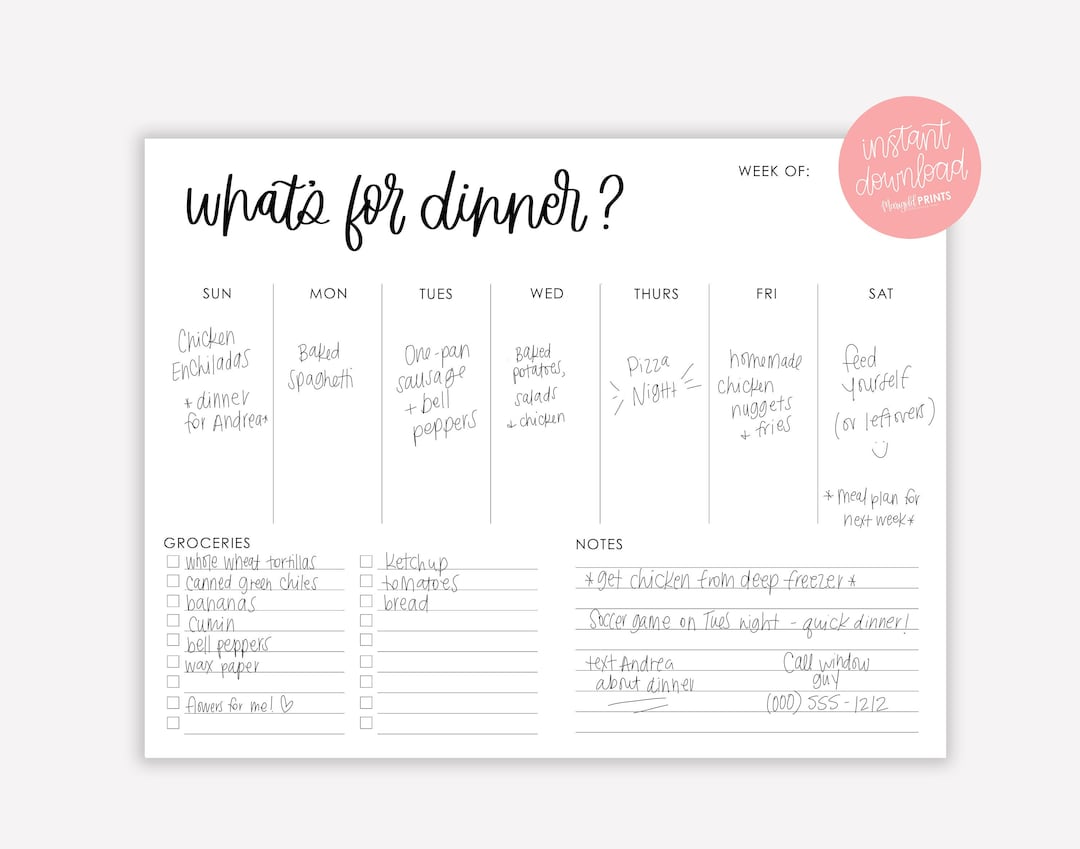 what's for dinner?
WEEK OF:
instant
download
Marigold PRINTS
SUN
Chicken
Enchiladas
*dinner
for Andrea*
MON
Baked
Spaghetti
TUES
One-pan
sausage
+ bell
peppers
WED
Baked
potatoes,
salads
+ chicken
THURS
Pizza
Night
FRI
homemade
chicken
nuggets
+ fries
SAT
feed
yourself
(or leftovers)
*meal plan for
next week*
GROCERIES
whole wheat tortillas
canned green chiles
bananas
cumin
bell peppers
wax paper
flowers for me! ♡
ketchup
tomatoes
bread
NOTES
*get chicken from deep freezer*
Soccer game on Tues night - quick dinner!
text Andrea
about dinner
Call window
guy
(000) 555-1212